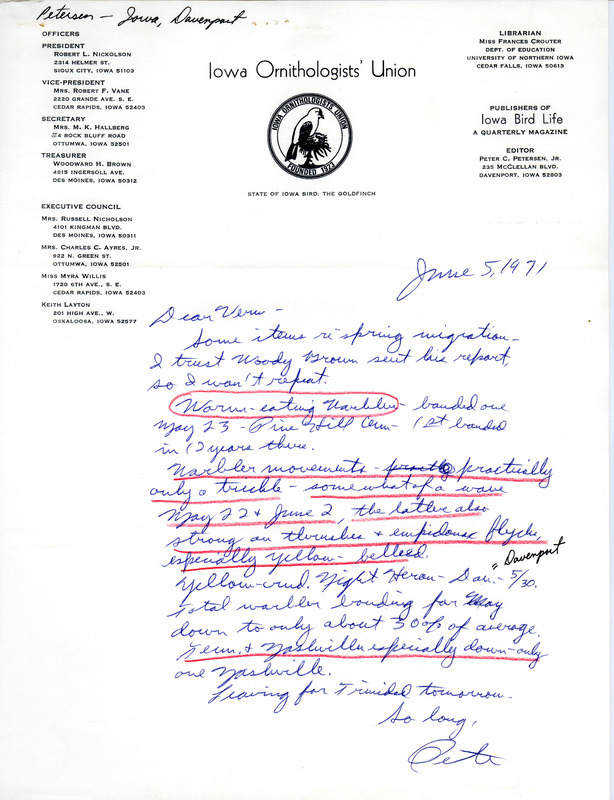 Petersen - Iowa, Davenport
OFFICERS
PRESIDENT
ROBERT L. NICKOLSON
2314 HELMER ST.
SIOUX CITY, IOWA 51103
VICE-PRESIDENT
MRS. ROBERT F. VANE
2220 GRANDE AVE. S. E.
CEDAR RAPIDS, IOWA 52403
SECRETARY
MRS. M. K. HALLBERG
#4 ROCK BLUFF ROAD
OTTUMWA, IOWA 52501
TREASURER
WOODWARD H. BROWN
4815 INGERSOLL AVE.
DES MOINES, IOWA 50312
EXECUTIVE COUNCIL
MRS. RUSSELL NICHOLSON
4101 KINGMAN BLVD.
DES MOINES, IOWA 50311
MRS. CHARLES C. AYRES, JR.
922 N. GREEN ST.
OTTUMWA, IOWA 52501
MISS MYRA WILLIS
1720 6TH AVE., S. E.
CEDAR RAPIDS, IOWA 52403
KEITH LAYTON
201 HIGH AVE., W.
OSKALOOSA, IOWA 52577
Iowa Ornithologists' Union
IOWA ORNITHOLOGISTS UNION
FOUNDED 1923
STATE OF IOWA BIRD: THE GOLDFINCH
LIBRARIAN
MISS FRANCES CROUTER
DEPT. OF EDUCATION
UNIVERSITY OF NORTHERN IOWA
CEDAR FALLS, IOWA 50613
PUBLISHERS OF
Iowa Bird Life
A QUARTERLY MAGAZINE
EDITOR
PETER C. PETERSEN, JR.
235 MCCLELLAN BLVD.
DAVENPORT, IOWA 52803
June 5, 1971
Dear Vern -
Some items re spring migration -
I trust Woody Brown sent his report,
so I won't repeat.
Worm-eating Warbler - banded one
May 23 - Pine Hill Cem - 1st banded
in 12 years there.
Warbler movements - practically
only a trickle - somewhat of a wave
May 22 & June 2, the latter also
strong on thrushes & empidonax flycs,
especially yellow-bellied.
= Davenport
Yellow-crnd. Night Heron - Dav. - 5/30.
Total warbler banding for May
down to only about 30% of average.
Tenn. & Nashville especially down - only
one Nashville.
Leaving for Trinidad tomorrow -
So long,
Pete